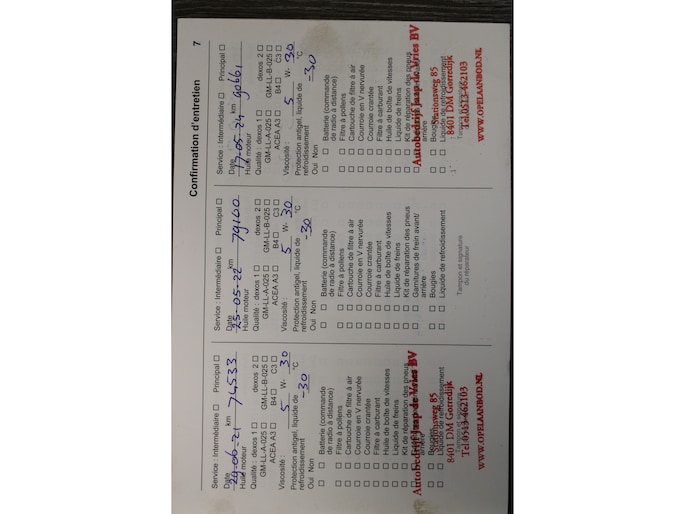 Confirmation d'entretien
7
Service : Intermédiaire Principal
Date km
24-06-21 74533
Huile moteur
Qualité : dexos 1 dexos 2
GM-LL-A-025 GM-LL-B-025
ACEA A3 B4 C3
Viscosité : 5 W- 30
Protection antigel, liquide de
refroidissement -30 °C
Oui Non
Batterie (commande
de radio à distance)
Filtre à pollens
Cartouche de filtre à air
Courroie en V nervurée
Courroie crantée
Filtre à carburant
Huile de boîte de vitesses
Liquide de freins
Kit de réparation des pneus
arrière
Bougies
Liquide de refroidissement
Autobedrijf Jaap de Vries BV
Stationsweg 85
8401 DM Gorredijk
Tel.0513-462103
WWW.OPELAANBOD.NL
Service : Intermédiaire Principal
Date km
25-05-22 79100
Huile moteur
Qualité : dexos 1 dexos 2
GM-LL-A-025 GM-LL-B-025
ACEA A3 B4 C3
Viscosité : 5 W- 30
Protection antigel, liquide de
refroidissement -30 °C
Oui Non
Batterie (commande
de radio à distance)
Filtre à pollens
Cartouche de filtre à air
Courroie en V nervurée
Courroie crantée
Filtre à carburant
Huile de boîte de vitesses
Liquide de freins
Kit de réparation des pneus
Garnitures de frein avant/
arrière
Bougies
Liquide de refroidissement
Tampon et signature
du réparateur
Service : Intermédiaire Principal
Date km
17-05-24 90661
Huile moteur
Qualité : dexos 1 dexos 2
GM-LL-A-025 GM-LL-B-025
ACEA A3 B4 C3
Viscosité : 5 W- 30
Protection antigel, liquide de
refroidissement -30 °C
Oui Non
Batterie (commande
de radio à distance)
Filtre à pollens
Cartouche de filtre à air
Courroie en V nervurée
Courroie crantée
Filtre à carburant
Huile de boîte de vitesses
Liquide de freins
Kit de réparation des pneus
arrière
Bougies
Liquide de refroidissement
Autobedrijf Jaap de Vries BV
Stationsweg 85
8401 DM Gorredijk
Tel.0513-462103
WWW.OPELAANBOD.NL